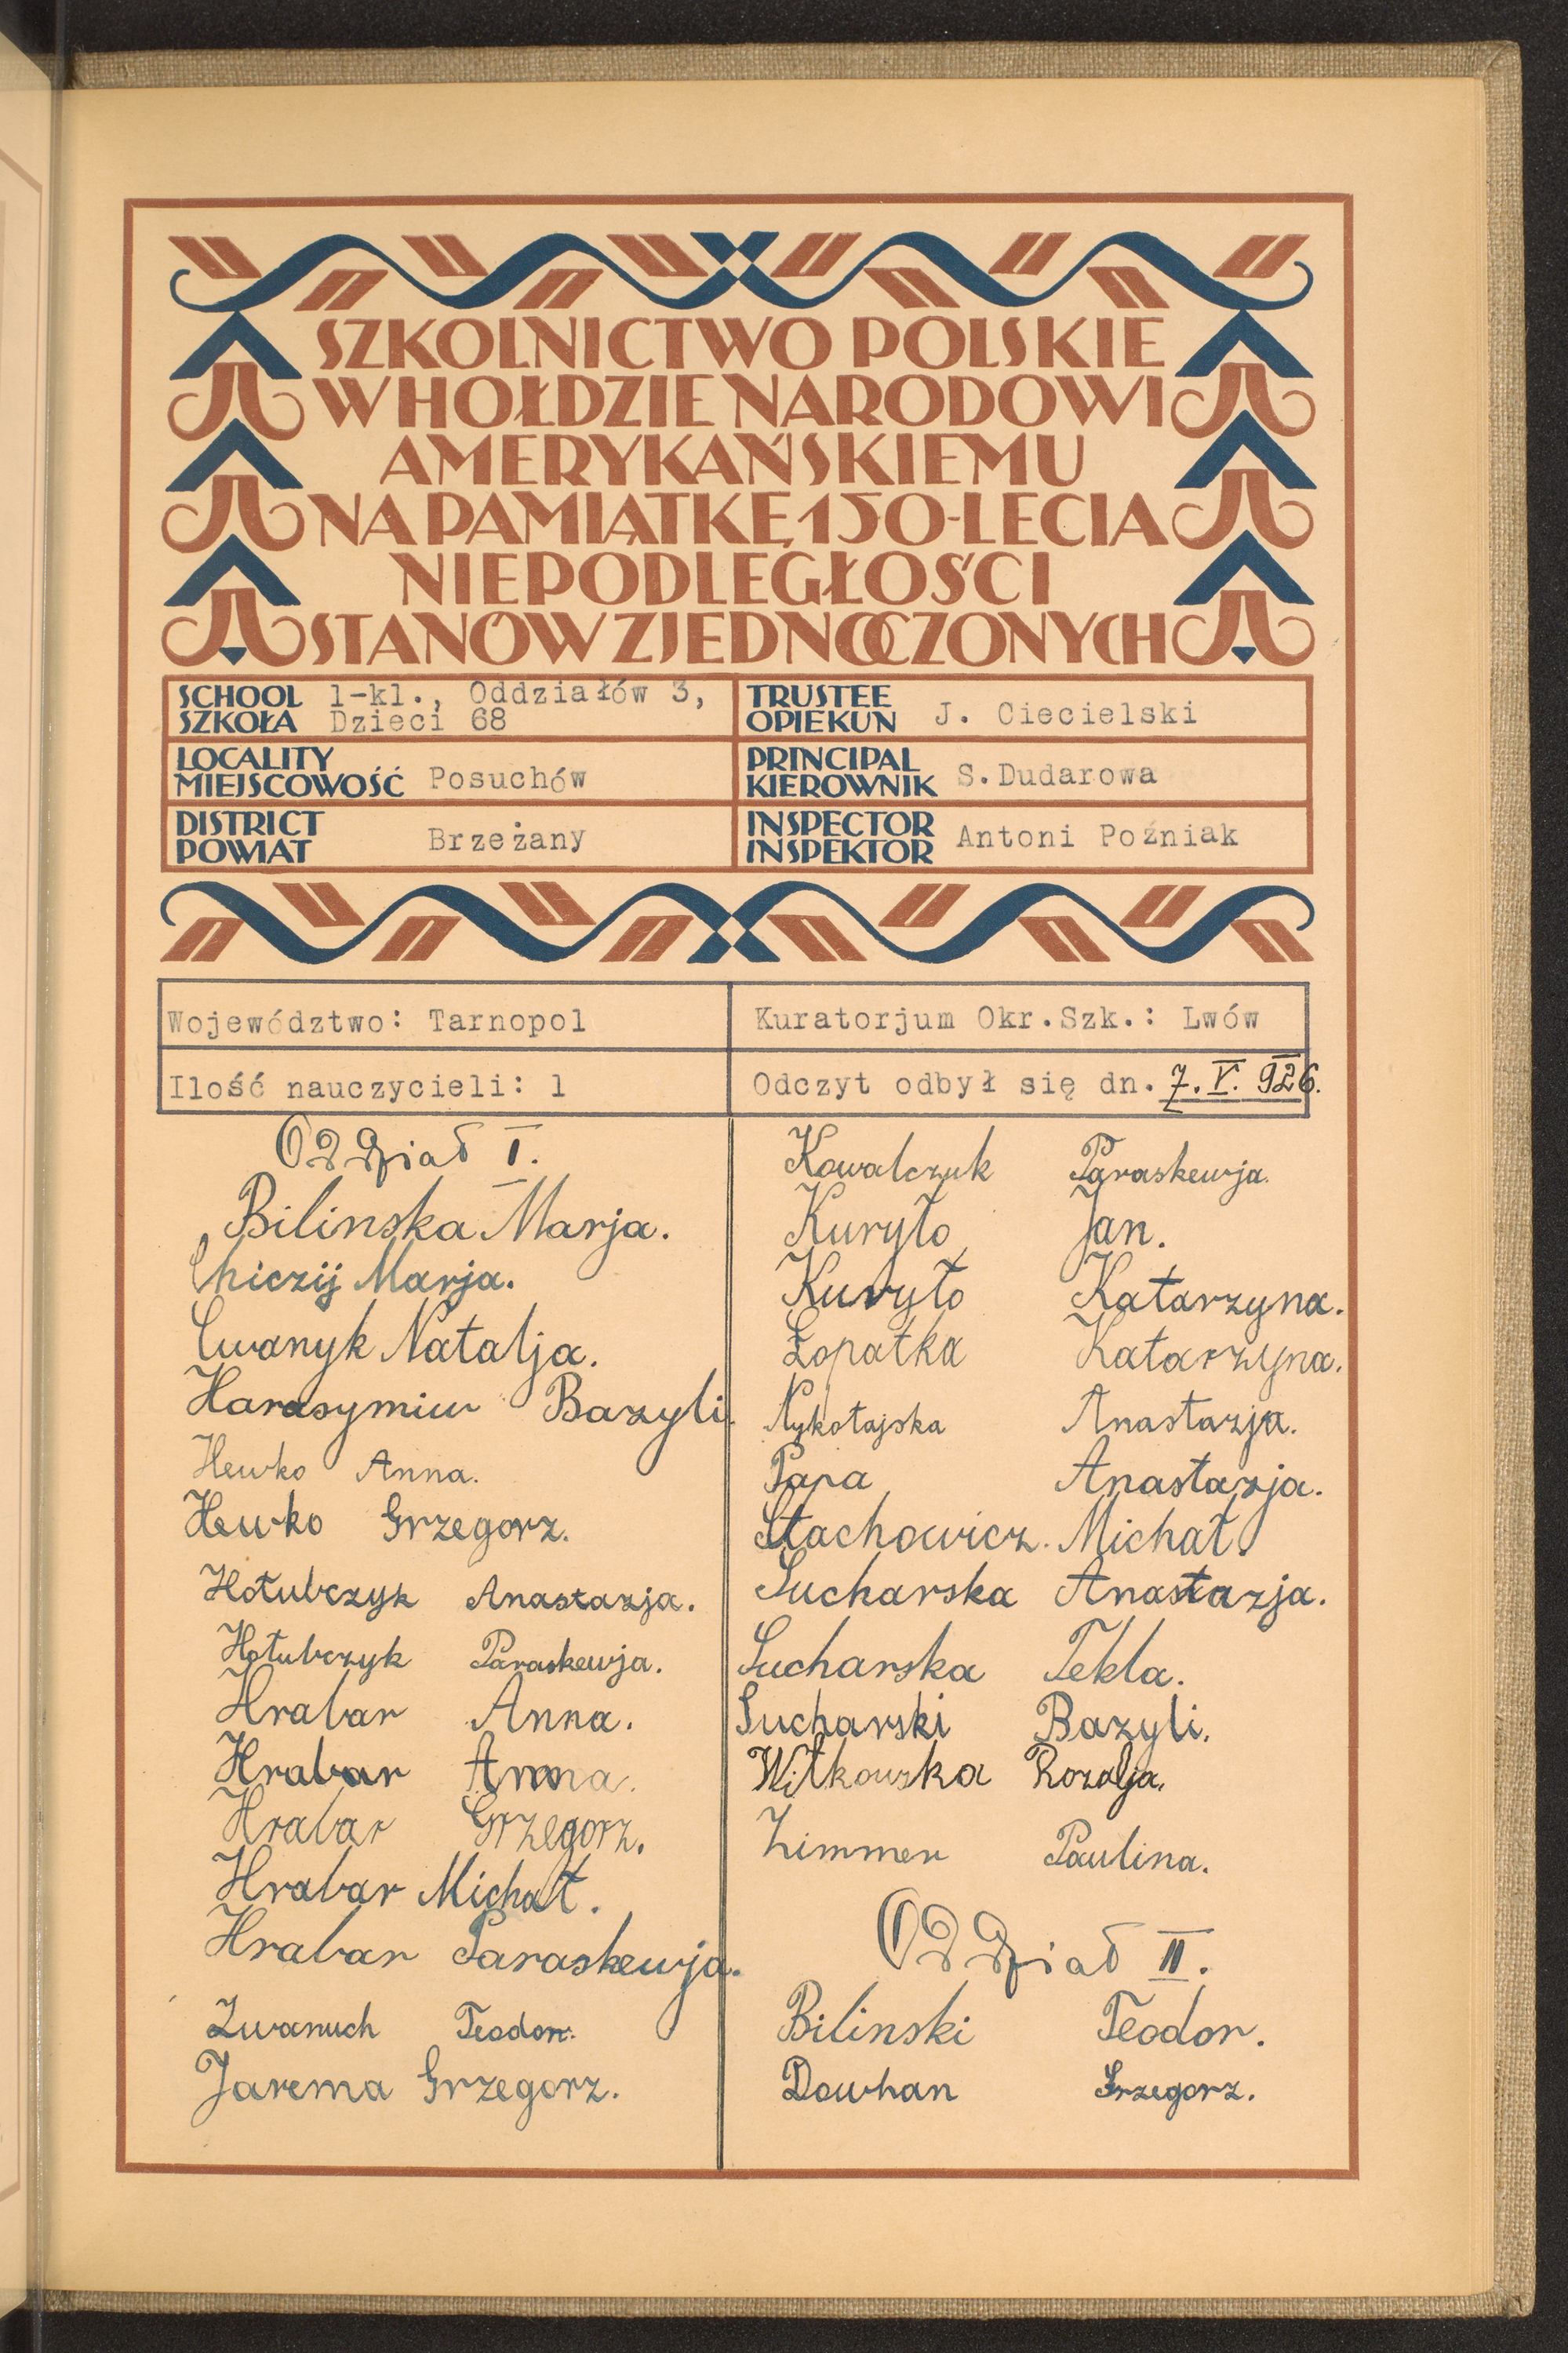 SZKOLNICTWO POLSKIE
W HOŁDZIE NARODOWI
AMERYKAŃSKIEMU
NA PAMIĄTKĘ 150-LECIA
NIEPODLEGŁOŚCI
STANÓW ZJEDNOCZONYCH
SCHOOL
SZKOŁA
1-kl., Oddziałów 3,
Dzieci 68
TRUSTEE
OPIEKUN
J. Ciecielski
LOCALITY
MIEJSCOWOŚĆ
Posuchów
PRINCIPAL
KIEROWNIK
S.Dudarowa
DISTRICT
POWIAT
Brzeżany
INSPECTOR
INSPEKTOR
Antoni Poźniak
Województwo: Tarnopol
Kuratorjum Okr.Szk.: Lwów
Ilość nauczycieli: 1
Odczyt odbył się dn. 7. V. 926.
Oddział I.
Bilinska Marja.
Chiczij Marja.
Cwanyk Natalja.
Harasymiw Bazyli.
Hewko Anna.
Hewko Grzegorz.
Hołubczyk Anastazja.
Hołubczyk Paraskewja.
Hrabar Anna.
Hrabar Anna.
Hrabar Grzegorz.
Hrabar Michał.
Hrabar Paraskewja.
Iwanuch Teodor.
Jarema Grzegorz.
Kowalczuk Paraskewja.
Kuryło Jan.
Kuryło Katarzyna.
Łopatka Katarzyna.
Nykołajska Anastazja.
Papa Anastazja.
Stachowicz Michał.
Sucharska Anastazja.
Sucharska Tekla.
Sucharski Bazyli.
Witkowska Rozalja.
Zimmer Paulina.
Oddział II.
Bilinski Teodor.
Dowhan Grzegorz.